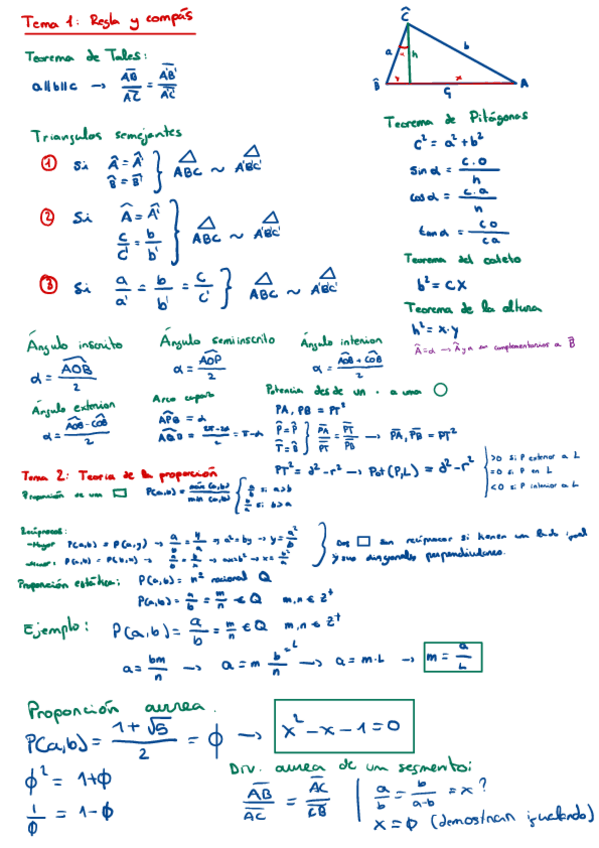 Tema 1: Regla y compás
Ĉ
a
h
b
B̂
A
Teorema de Tales:
a||b||c → AB/AC = A'B'/A'C'
Triangulos semejantes
① Si Â = Â' B̂ = B̂' } ABC ~ A'B'C'
② Si Â = Â' c/c' = b/b' } ABC ~ A'B'C'
③ Si a/a' = b/b' = c/c' } ABC ~ A'B'C'
Teorema de Pitágoras
c² = a² + b²
sin α = c.o/h
cos α = c.a/h
tan α = co/ca
Teorema del cateto
b² = cx
Teorema de la altura
h² = x·y
Â = α → Â y α son complementarios a B̂
Ángulo inscrito
α = AOB/2
Ángulo semiinscrito
α = AOP/2
Ángulo interior
α = AOB + COB/2
Ángulo exterior
α = AOB - COB/2
Arco capaz
APB = α
Potencia desde un · a una ◯
PA, PB = PT²
P̂ = P̂ T̂ = B̂ } PA/PT = PT/PB → PA, PB = PT²
PT² = d² - r² → Pot(P,L) = d² - r² { >0 si P exterior a L
=0 si P en L
<0 si P interior a L
Tema 2: Teoria de la proporción
Proporción de un ▭ P(a,b) = max(a,b)/min(a,b) { a/b si a>b
b/a si b>a
Recíprocos:
-Mayor P(a,b) = P(a,y) → a/b = y/a → a² = by → y = a²/b
Dos ▭ son recíprocos si tienen un lado igual
y sus diagonales perpendiculares.
Proporción estática: P(a,b) = nº racional Q
P(a,b) = a/b = m/n ∈ Q m,n ∈ Z⁺
Ejemplo: P(a,b) = a/b = m/n ∈ Q m,n ∈ Z⁺
a = bm/n → a = m b/n =L → a = m·L → m = a/L
Proporción aurea.
P(a,b) = 1+√5/2 = ϕ → x² - x - 1 = 0
ϕ² = 1+ϕ
1/ϕ = 1-ϕ
Div. aurea de un segmento:
AB/AC = AC/CB | a/b = b/a-b = x?
x = ϕ (demostrar igualando)